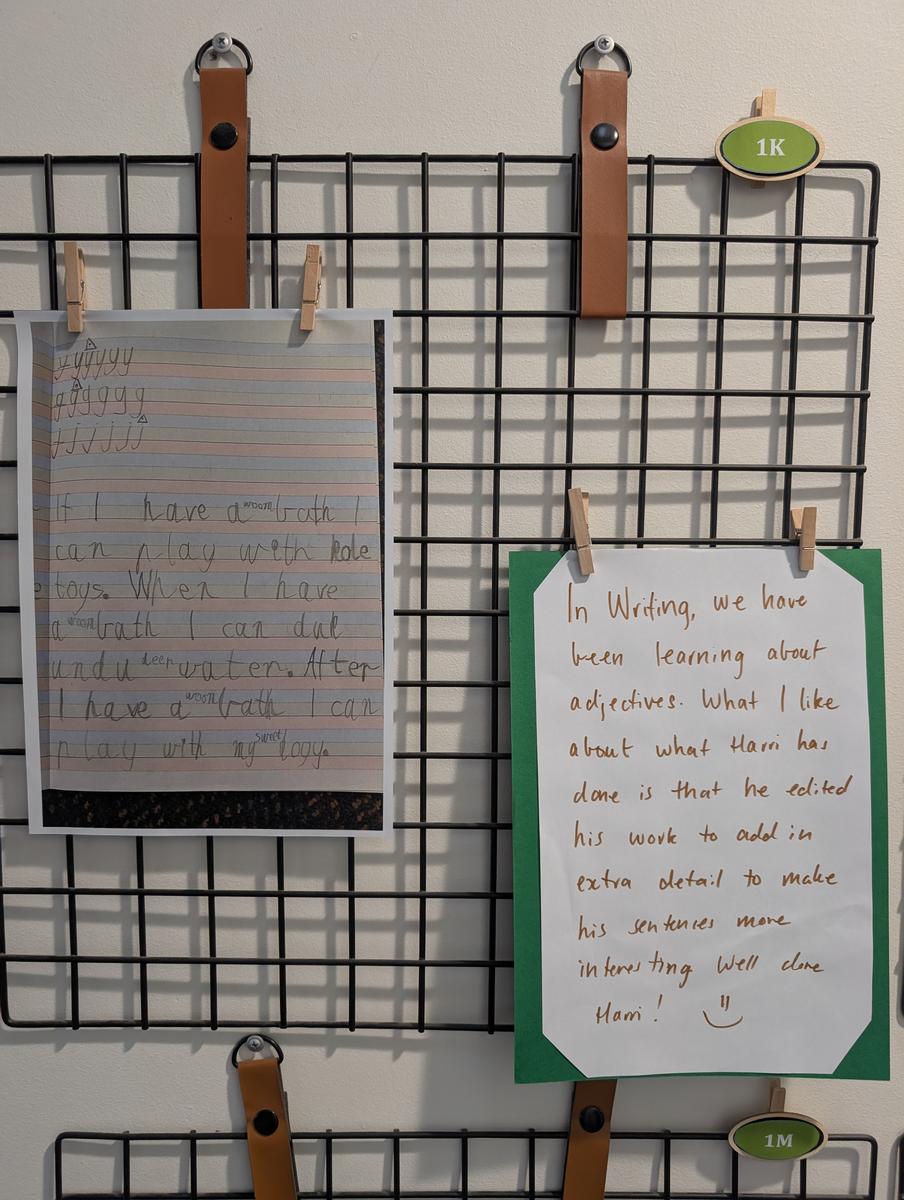 1K
y y y y y y
g g g g g g
j j j j j j
If I have a woom bath I
can play with
toys. When I have
a woom bath I can duk
undu deep water. After
I have a woom bath I can
play with my sweet logy.
In Writing, we have
been learning about
adjectives. What I like
about what Harri has
done is that he edited
his work to add in
extra detail to make
his sentences more
interesting Well done
Harri!
1M